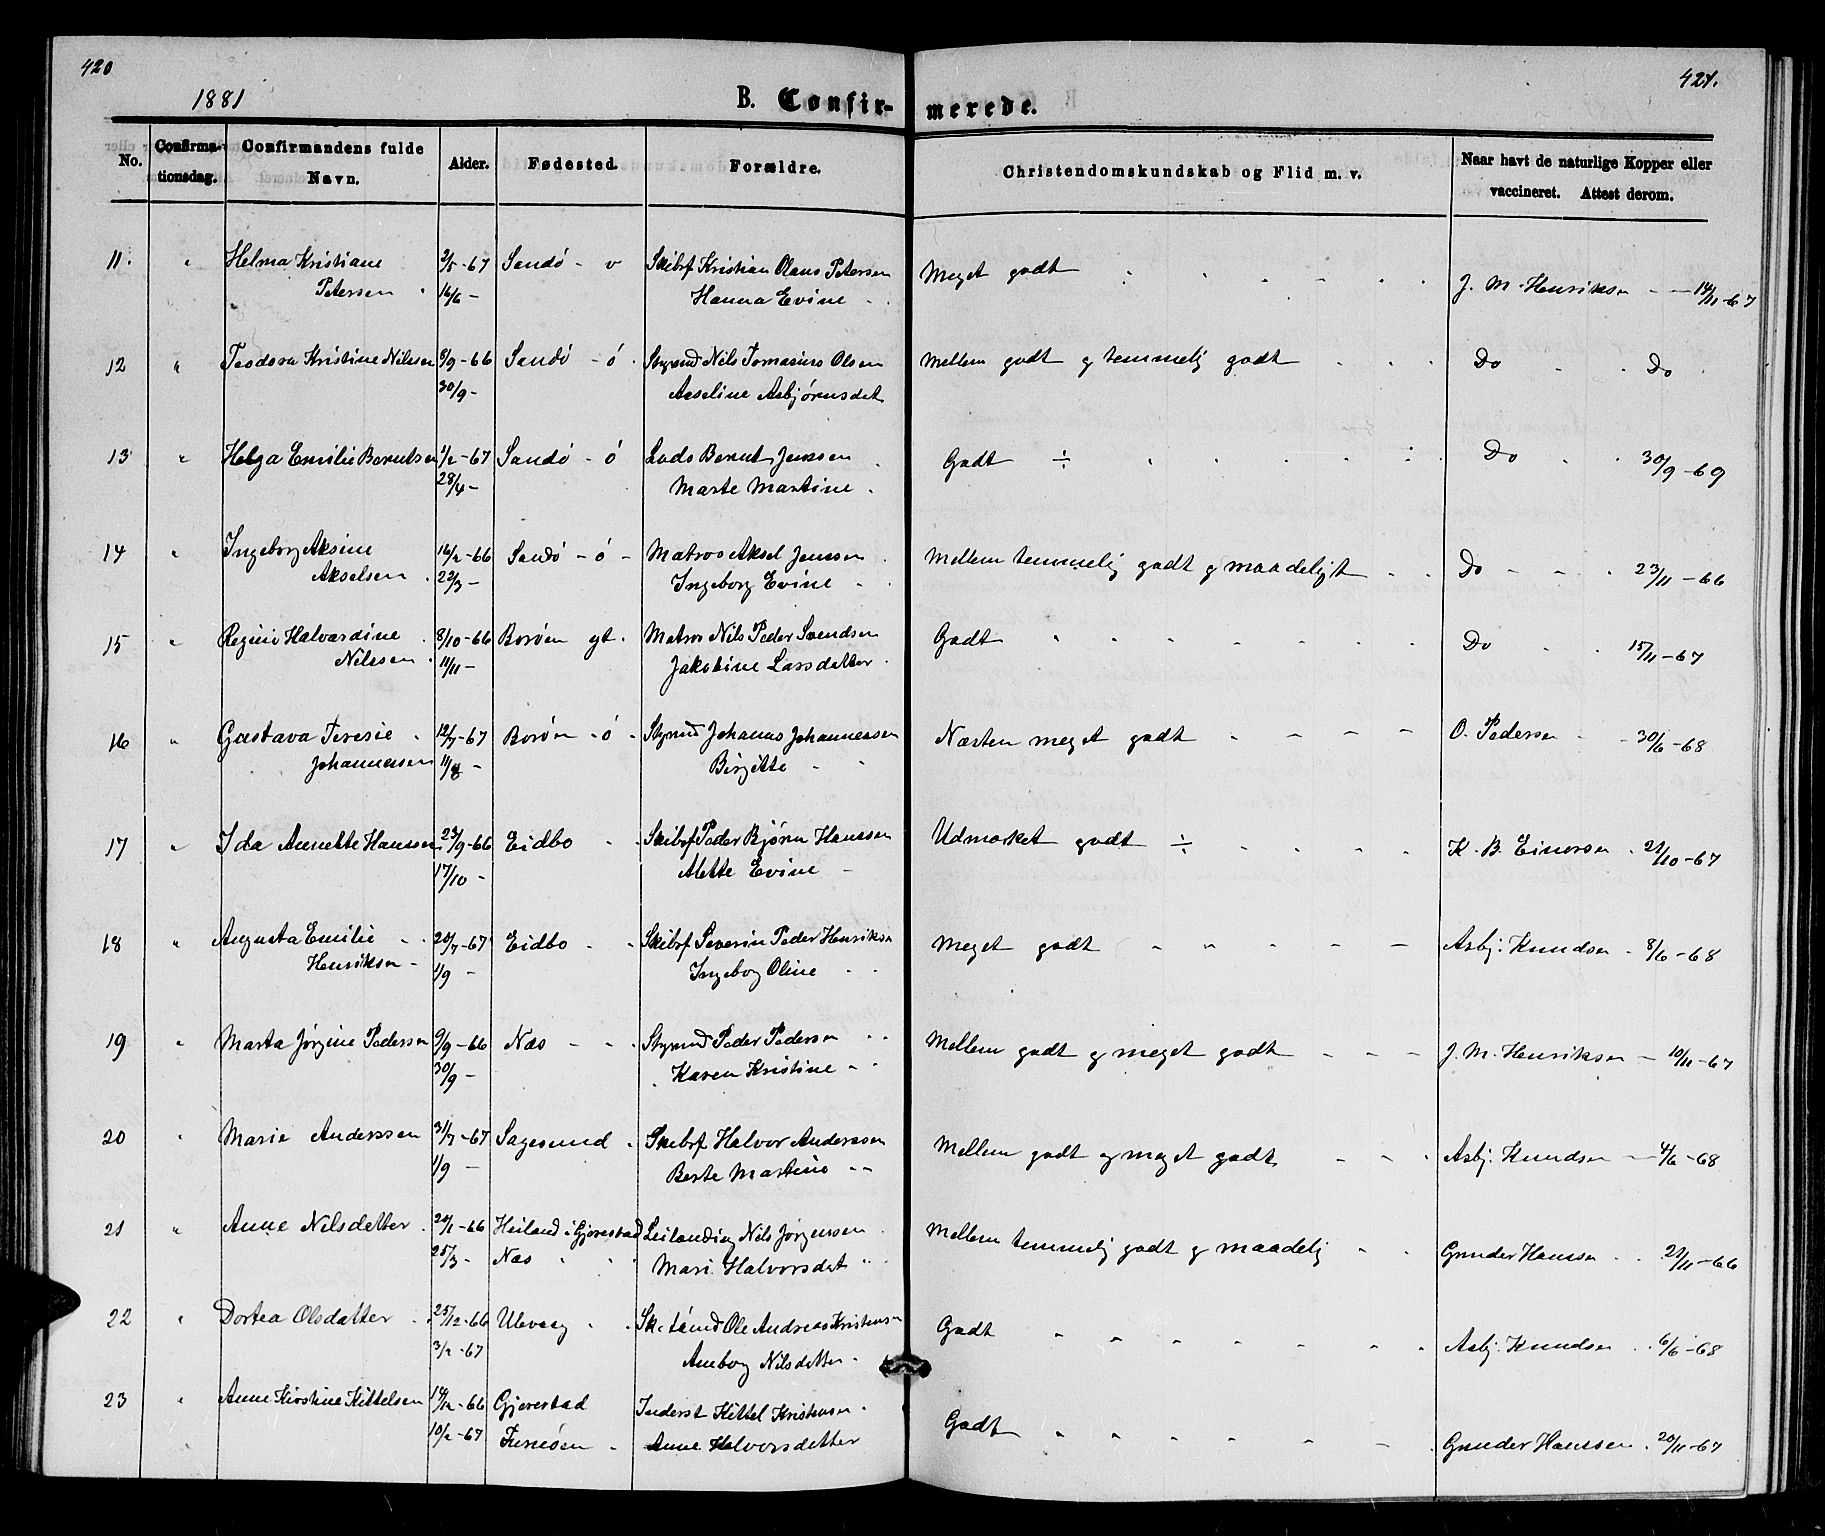 420
421.
1881
B. Confir-
merede.
No.
Confirma-
tionsdag.
Confirmandens fulde
Navn.
Alder.
Fødested.
Forældre.
Christendomskundskab og Flid m. v.
Naar havt de naturlige Kopper eller
vaccineret. Attest derom.
11. " Helma Kristiane 2/5-67 Sandö - v Skibsf Kristian Olaus Petersen Meget godt J. M. Henriksen - 14/11-67
Petersen 16/6 - Hanna Evine
12 " Teodora Kristine Nilssen 8/9-66 Sandö - ö Styrmd Nils Tomasius Olsen Mellem godt og temmelig godt Do Do
30/9 - Asseline Asbjørnsdat
13 " Helga Emilie Berntsen 1/2-67 Sandö - ö Lods Bernt Jenssen Godt ÷ Do 30/9-69
28/4 - Marte Martine
14 " Ingeborg Aksine 16/2-66 Sandö - ö - Matros Aksel Jenssen Mellem temmelig godt og maadeligt Do 23/11-66
Akselsen 22/3 - Ingeborg Evine
15 " Regine Halvardine 8/10-66 Borøen yt. Matros Nils Peder Svendsen Godt Do 15/11-67
Nilssen 11/11 - Jakobine Larsdatter
16 " Gustava Teresie 12/7-67 Borøen - ö Styrmd Johannes Johannessen Næsten meget godt O. Pedersen - 30/6-68
Johannessen 11/8 - Birgitte
17 " Ida Annette Hanssen 23/9-66 Eidbo Skibsf Peder Bjørn Hanssen Udmærket godt ÷ K. B. Einersen 21/10-67
17/10 - Alette Evine
18 " Augusta Emilie 20/7-67 Eidbo Skibsf Severin Peder Henriksen Meget godt Asbj. Knudsen 8/6-68
Henriksen 1/9 - Ingeborg Oline
19 " Marta Jørgine Pedersen 9/9-66 Næs Styrmd Peder Pedersen Mellem godt og meget godt J. M. Henriksen - 10/11-67
30/9 - Karen Kristine
20 " Marie Anderssen 31/7-67 Sagesund Skibsf Halvor Anderssen Mellem godt og meget godt Asbj. Knudsen - 4/6-68
1/9 - Berte Martine
21 " Anne Nilsdatter 20/1-66 Heiland i Gjerestad Leilænding Nils Jørgenssen Mellem temmelig godt og maadelig Gunder Hanssen 21/11-66
25/3 - Næs Mari Halvorsdat
22 " Dortea Olsdatter 25/12-66 Ulevaag Ole Andreas Kristensen Godt Asbj. Knudsen 6/6-68
3/2-67 Anborg Nilsdatter
23 " Anne Kirstine Kittelsen 14/12-66 Gjerestad Inderst Kittel Kristensen Godt
10/2-67 Furuöen Anne Halvorsdatter Gunder Hanssen 20/11-67